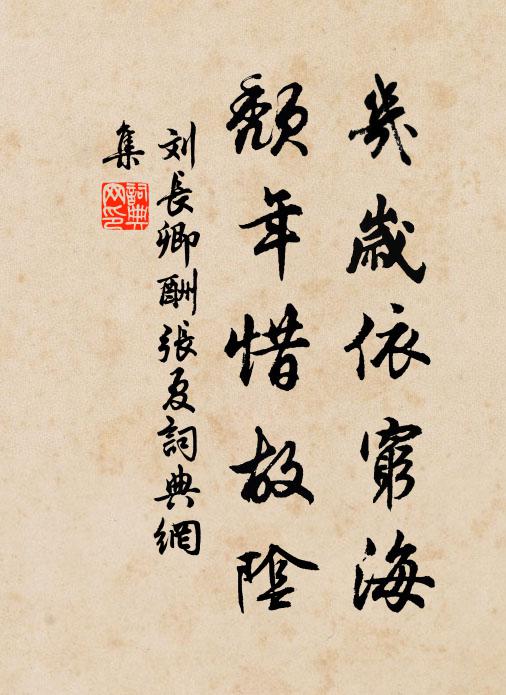 幾歲依窮海
頹年惜故陰
刘長卿酬張夏詞典網
集
詞典
网印